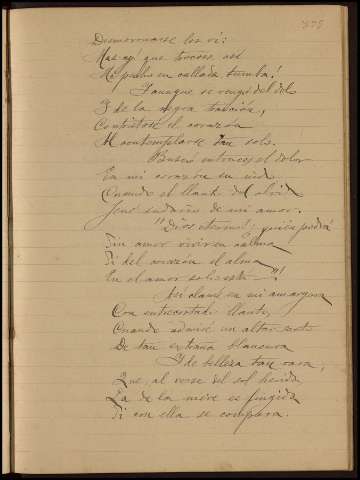 375
Desmoronarse los vi:
Mas ay! que tornose así
Mi pecho en callada tumba!
I aunque se rompió del dolo
I de la negra traición,
Contristose el corazón
Al contemplarse tan solo.
Buscó entonces el dolor
En mi corazón su nido
Cuando el llanto del olvido
de mi amor.
"Dios eterno! quién podrá
Sin amor vivir en calma
Si del corazón el alma
En el amor solo está"!
Así clamé en mi amargura
Con entrecortado llanto,
Cuando admiré un altar
De tan extraña blancura
I de belleza tan rara,
Que, al verse del sol herida,
La de la nieve es fingida
Si con ella se compara.